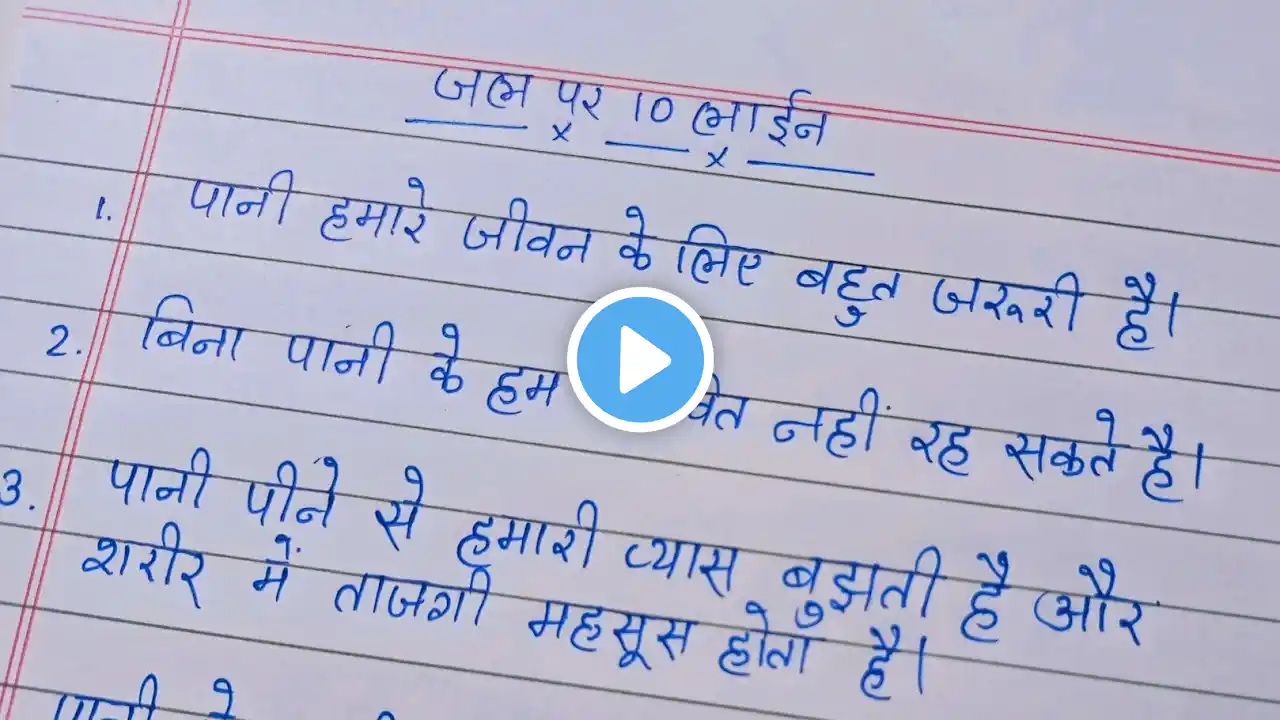 जल पर 10 लाईन
1. पानी हमारे जीवन के लिए बहुत जरूरी है।
2. बिना पानी के हम नहीं रह सकते है।
3. पानी पीने से हमारी प्यास बुझती है और
शरीर में ताजगी महसूस होता है।
पानी